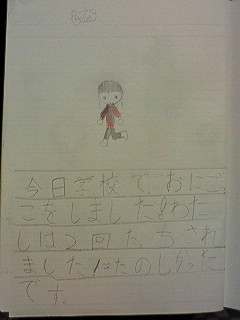 今日学校で、おにご
こをしました。わた
しは2回たっちされ
ました たのしかった
です。